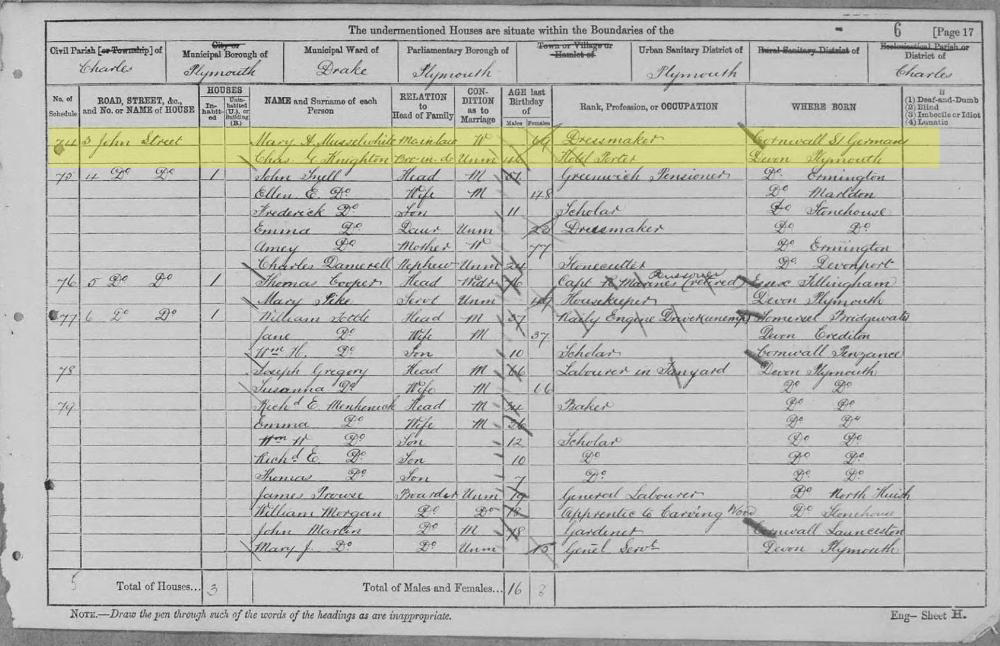 The undermentioned Houses are situate within the Boundaries of the 6 [Page 17
Civil Parish [or Township] of City or Municipal Borough of Municipal Ward of Parliamentary Borough of Town or Village or Hamlet of Urban Sanitary District of Rural Sanitary District of Ecclesiastical Parish or District of
Charles Plymouth Drake Plymouth Plymouth Charles
No. of Schedule ROAD, STREET, &c., and No. or NAME of HOUSE HOUSES Inhabited Uninhabited (U.), or Building (B.) NAME and Surname of each Person RELATION to Head of Family CONDITION as to Marriage AGE last Birthday of Males Females Rank, Profession, or OCCUPATION WHERE BORN If (1) Deaf-and-Dumb (2) Blind (3) Imbecile or Idiot (4) Lunatic
74 3 John Street Mary A. Musselwhite W 64 Dressmaker Cornwall St Germans
Chas G Knighton Unm 46 Hotel Porter Devon Plymouth
75 4 Do Do 1 John Snell Head M 61 Greenwich Pensioner Do Ermington
Ellen E. Do Wife M 48 Do Marldon
Frederick Do Son 11 Scholar Do Stonehouse
Emma Do Daur Unm 23 Dressmaker Do Do
Amey Do Mother W 77 Do Ermington
Charles Damerell Nephew Unm 24 Stonecutter Do Devonport
76 5 Do Do 1 Thomas Cooper Head Widr 76 Capt R Marines (retired) Pensioner Essex Tillingham
Mary Pike Servt Unm 49 Housekeeper Devon Plymouth
77 6 Do Do 1 William Head M 37 Engine Somerset Bridgwater
Jane Do Wife M 37 Devon Crediton
Wm H. Do Son 10 Scholar Cornwall Penzance
78 Joseph Gregory Head M 66 Labourer in Tanyard Devon Plymouth
Susanna Do Wife M 66 Do Do
79 Richd E. Menhenick Head M 34 Baker Do Do
Emma Do Wife M 36 Do Do
Wm W Do Son 12 Scholar Do Do
Richd E. Do Son 10 Do Do Do
Thomas Do Son 7 Do Do Do
James Prowse Boarder Unm 19 General Labourer Do North Huish
William Morgan Do Do 18 Apprentic to Carving Wood Do Stonehouse
John Martin Do M 78 Gardiner Cornwall Launceston
Mary J. Do Do Unm 15 Genel Servt Devon Plymouth
5 Total of Houses... 3 Total of Males and Females... 16 8
NOTE.—Draw the pen through such of the words of the headings as are inappropriate. Eng— Sheet H.